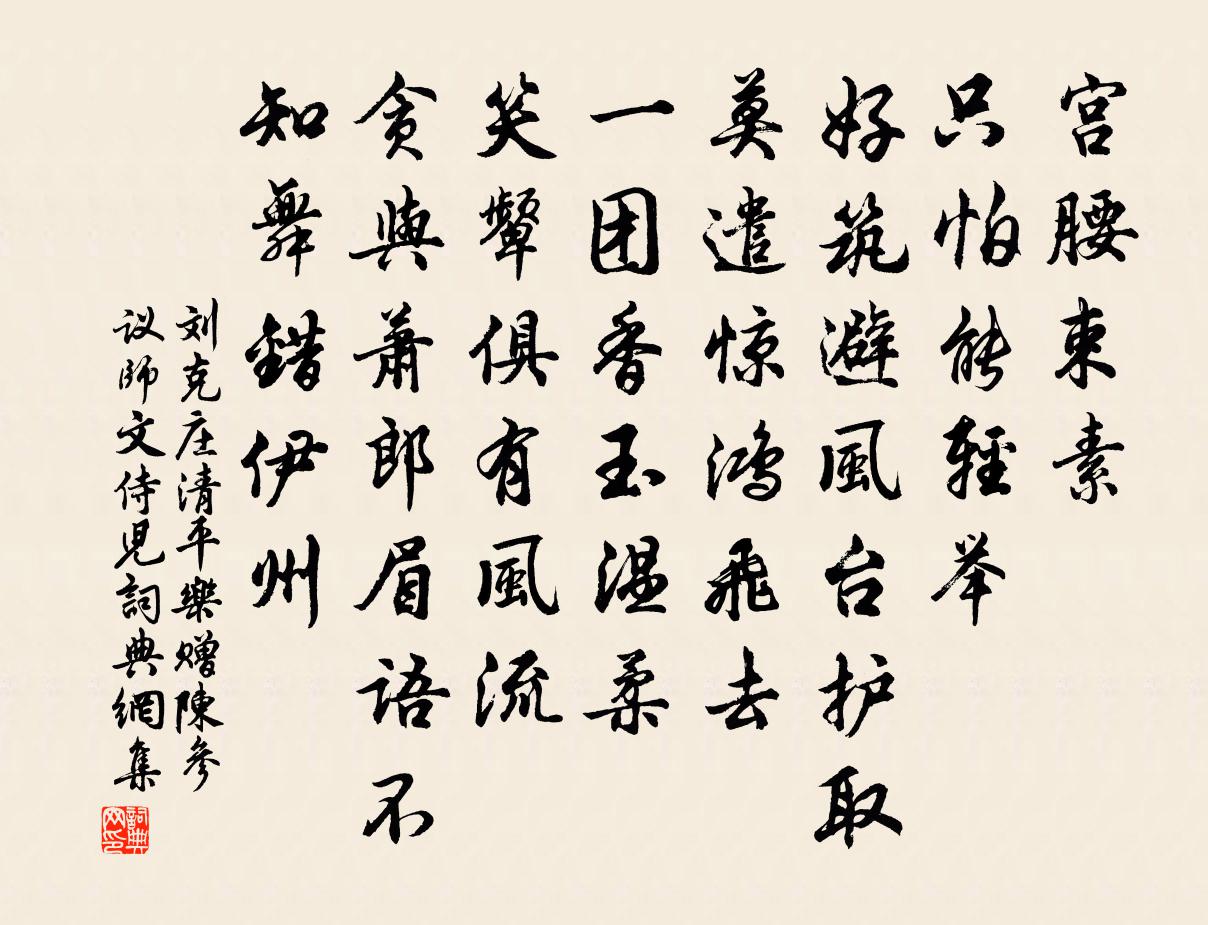 宫腰束素
只怕能輕举
好筑避風台护取
莫遣惊鸿飛去
一团香玉温柔
笑顰俱有風流
贪與萧郎眉语不
知舞錯伊州
刘克庄清平樂赠陳参
议師文侍児詞典網集
詞典网印